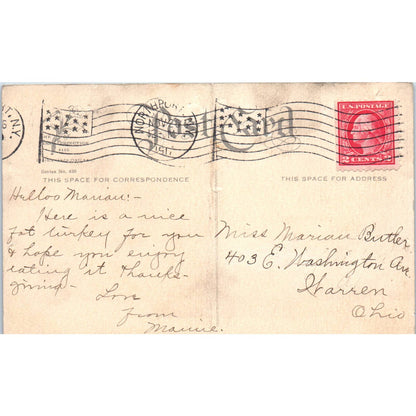 N.Y.
NORTHPORT, N.Y.
NOV 2
Post Card
U.S. POSTAGE
2 CENTS 2
Series No. 430
THIS SPACE FOR CORRESPONDENCE
THIS SPACE FOR ADDRESS
Helloo Marian! -
Here is a nice
fat turkey for you
& hope you enjoy
eating it thanks-
giving -
Love
from
Mamie.
Miss Marian Butler
403 E. Washington Ave.
Warren
Ohio